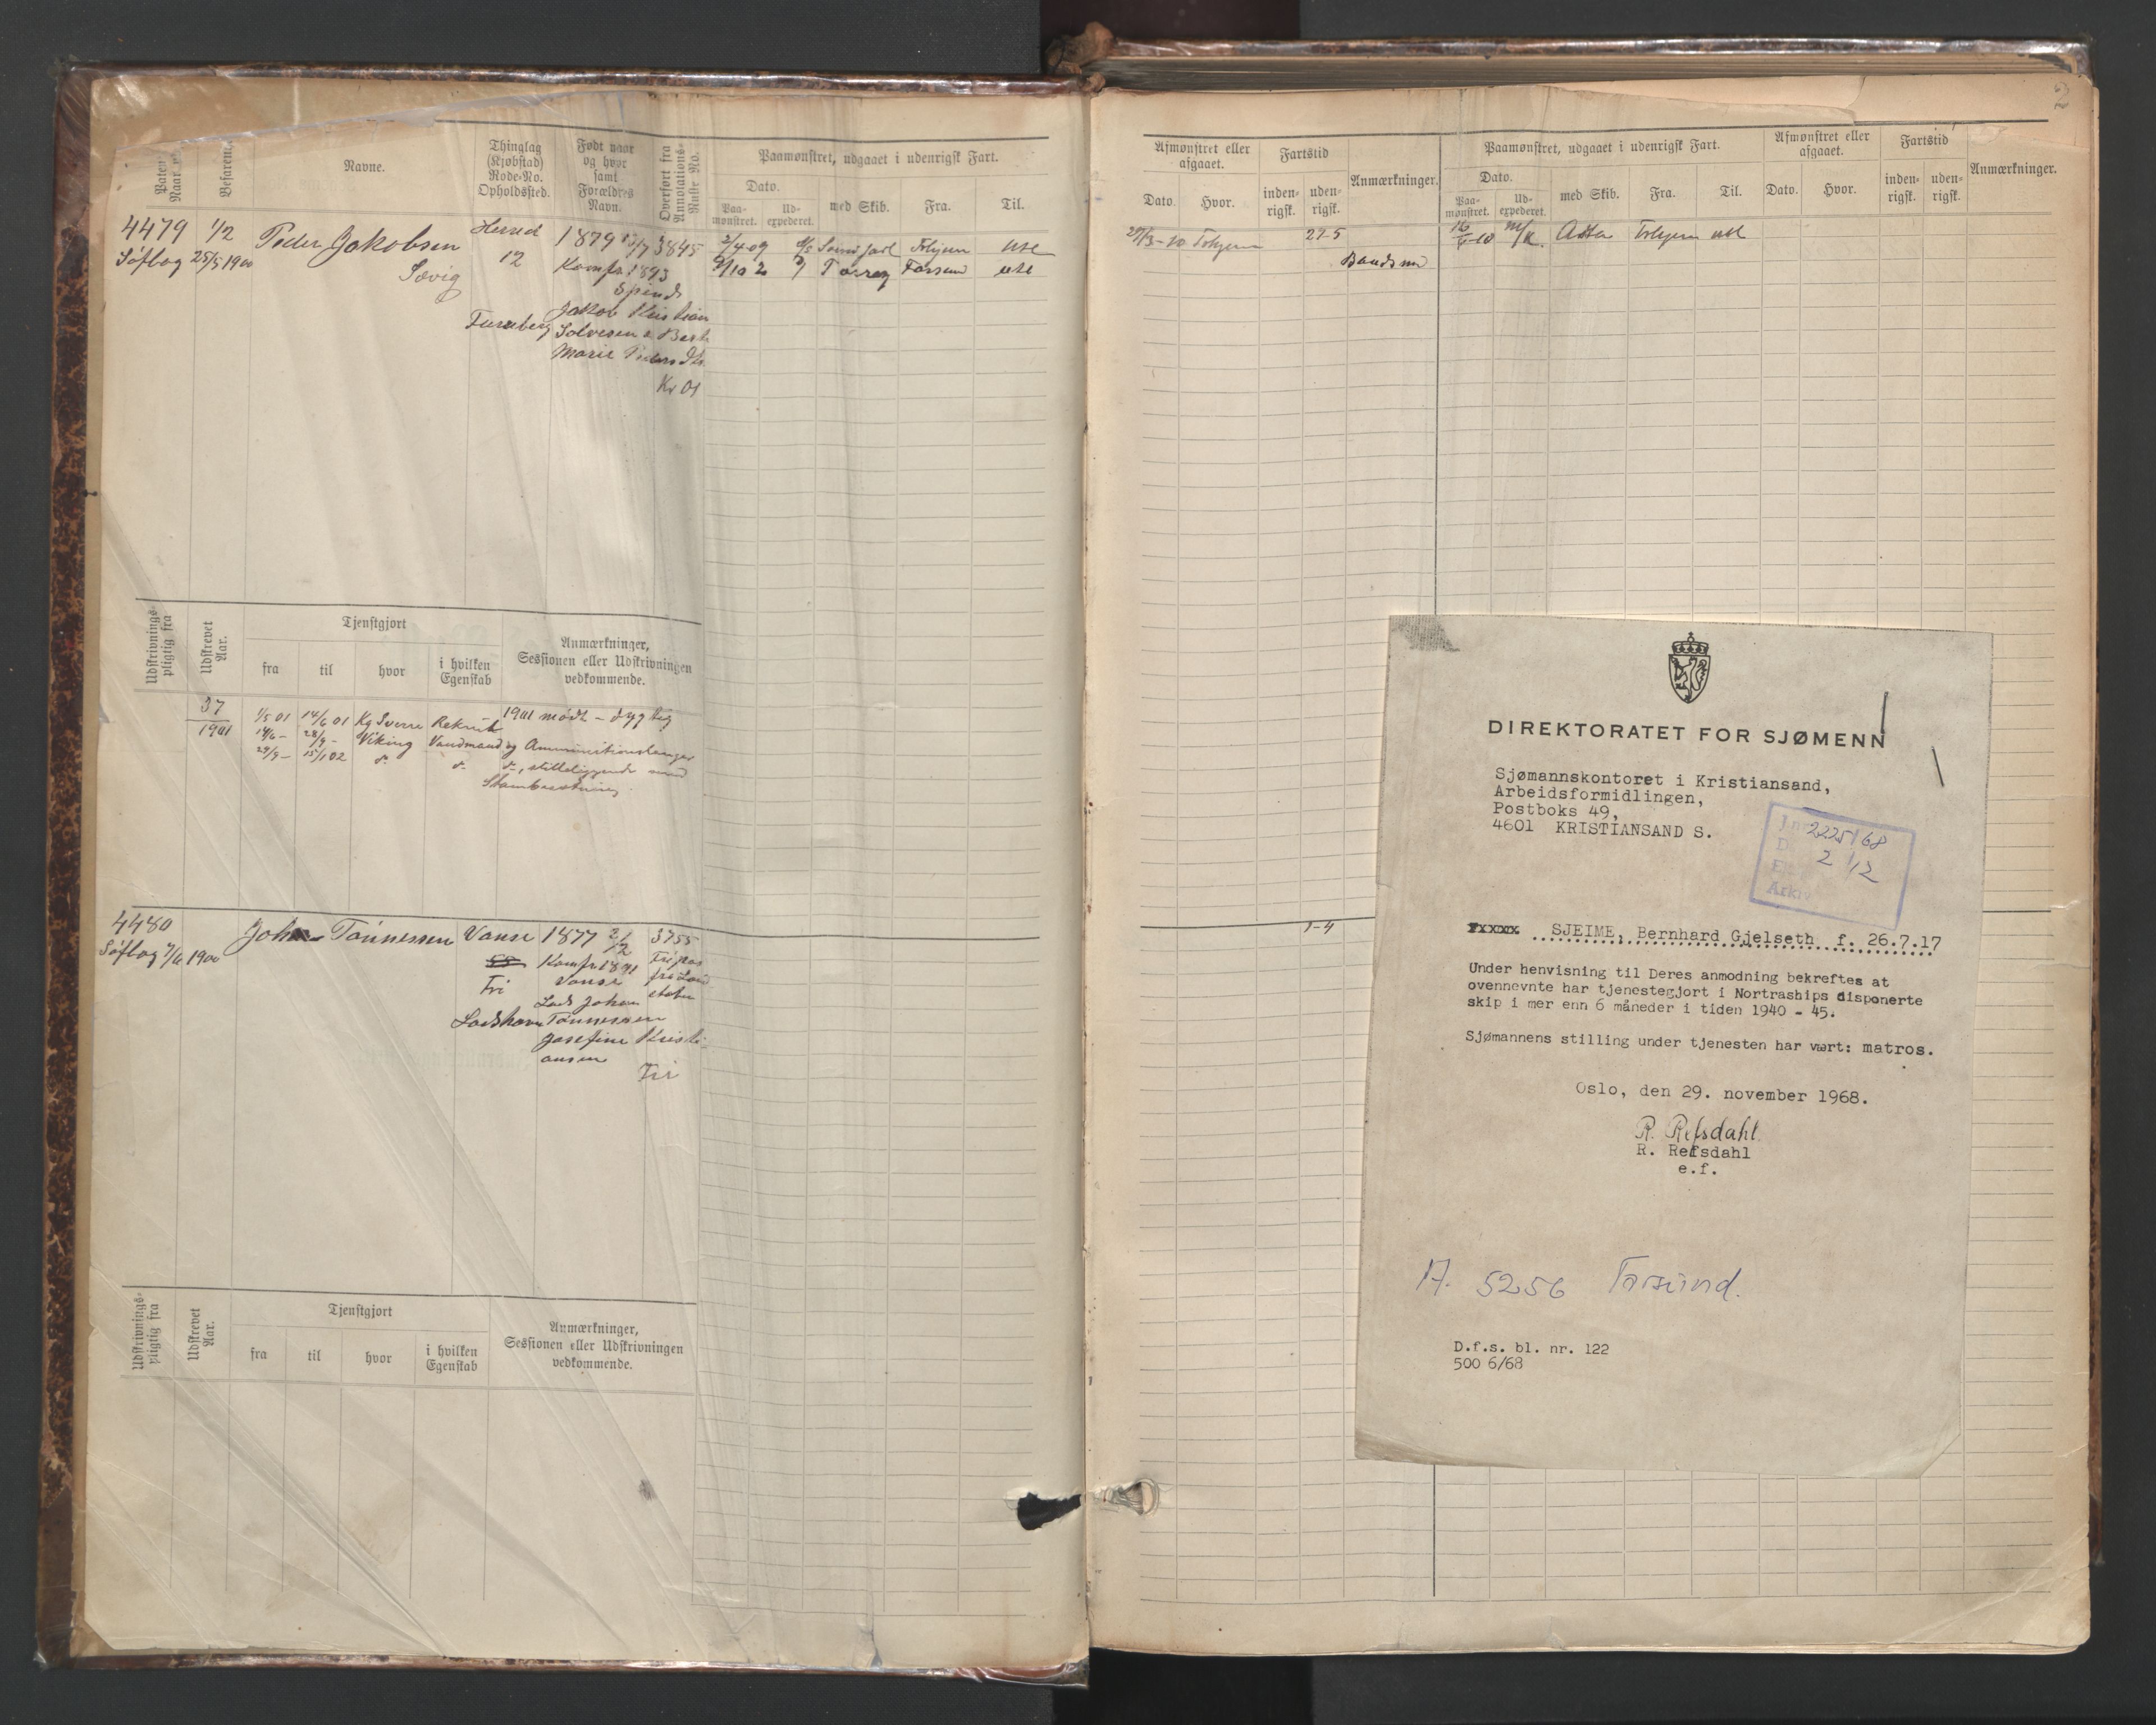 2
Navne.
Thinglag
(Kjøbstad)
Rode-No.
Opholdssted.
Født naar
og hvor
samt
Forældres
Navn.
Overført fra
Annotations-
Rulle No.
Paamønstret, udgaaet i udenrigsk Fart.
Dato.
Paa-
mønstret.
Ud-
expederet.
med Skib.
Fra.
Til.
4479
1/2
Peder Jakobsen
Herred
1879
3845
2/4 09
ute
Søfbog
25/5 1900
Sævig
12
Konfr. 1893
Farsund
ute
Spind
Jakob Kristian
Marie
Kr 01
Udskrivnings-
pligtig fra
Udskrevet
Aar.
Tjenstgjort
fra
til
hvor
i hvilken
Egenskab
Anmærkninger,
Sessionen eller Udskrivningen
vedkommende.
37
1901
1/5 01
14/6 01
Kg Sverre
Rekrut
1901 mødt - dygtig
14/6 -
28/9 -
Viking
Vandmand og Ammunitionslanger
29/9 -
15/1 02
4480
Tønnessen
Vanse
1877
2/2
3755
Søfbog
1900
Konfr.
Fri
Vanse
Lods Johan
Tønnessen
Josefine Kristi-
ansen
Fri
Udskrivnings-
pligtig fra
Udskrevet
Aar.
Tjenstgjort
fra
til
hvor
i hvilken
Egenskab
Anmærkninger,
Sessionen eller Udskrivningen
vedkommende.
Afmønstret eller
afgaaet.
Dato.
Hvor.
Fartstid
inden-
rigsk.
uden-
rigsk.
Anmærkninger.
Paamønstret, udgaaet i udenrigsk Fart.
Dato.
Paa-
mønstret.
Ud-
expederet.
med Skib.
Fra.
Til.
Afmønstret eller
afgaaet.
Dato.
Hvor.
Fartstid
inden-
rigsk.
uden-
rigsk.
Anmærkninger.
22-5
ute
Baadsm
1-4
DIREKTORATET FOR SJØMENN
Sjømannskontoret i Kristiansand,
Arbeidsformidlingen,
Postboks 49,
4601 KRISTIANSAND S.
2225/68
2/12
Arkiv
SJEIME, Bernhard Gjelseth f. 26.7.17
Under henvisning til Deres anmodning bekreftes at
ovennevnte har tjenestegjort i Nortraships disponerte
skip i mer enn 6 måneder i tiden 1940 - 45.
Sjømannens stilling under tjenesten har vært: matros.
Oslo, den 29. november 1968.
R. Refsdahl
R. Refsdahl
e.f.
A. 5256 Farsund.
D.f.s. bl. nr. 122
500 6/68